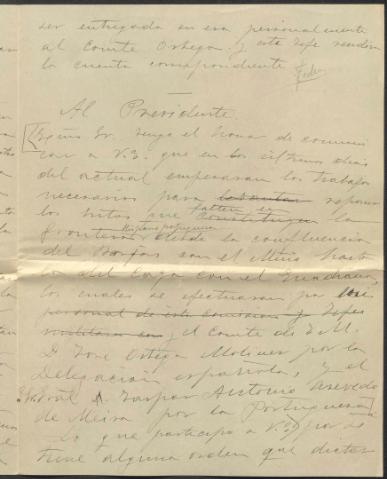 ser entregada en esa personalmente
al Comte Ortega y este Jefe rendira
la cuenta correspondiente
Al Presidente
Excmo Sr. Tengo el honor de comuni
car a V.E. que en los ultimos dias
del actual empezaran los trabajos
necesarios para levantar reponer
los hitos que falten en constituyen la
frontera Hispano portuguesa desde la confluencia
del Barjas con el Miño hasta
la del Caya con el Guadiana,
los cuales se efectuaran por
personal de esta Comision y Jefes
militares con el Comte de E.M.
D. José Ortega Moliner por la
Delegación española, y el
José Gaspar Antonio Azevedo
de Meira por la Portuguesa
Lo que participo a V.E. por si
tiene alguna orden que dictar